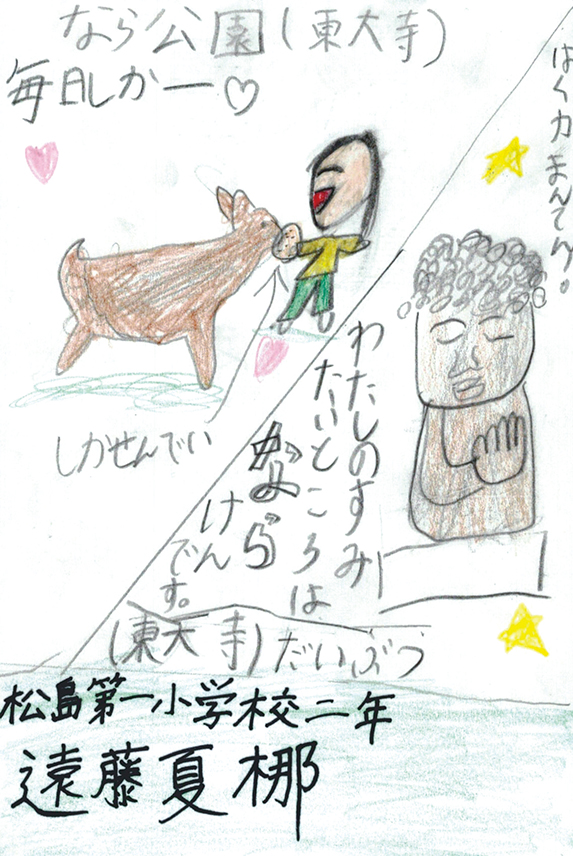 なら公園(東大寺)
毎日しかー♡
はく力まんてん。
しかせんでい
わたしのすみ
たいところは
なら
けん
です。
(東大寺)だいぶつ
松島第一小学校二年
遠藤夏梛